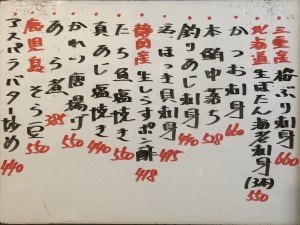 三重産 桜ぶり刺身 660
北海道 生ぼたん海老刺身(3本) 550
かつお刺身 660
本鮪中落ち 528
釣りあじ刺身 440
えぼっき貝刺身 495
静岡産 生しらすポン酢 418
たち魚塩焼き 550
真あじ塩焼き 440
かれい唐揚げ 550
あら煮 385
鹿児島 そら豆 550
アスパラバター炒め 440